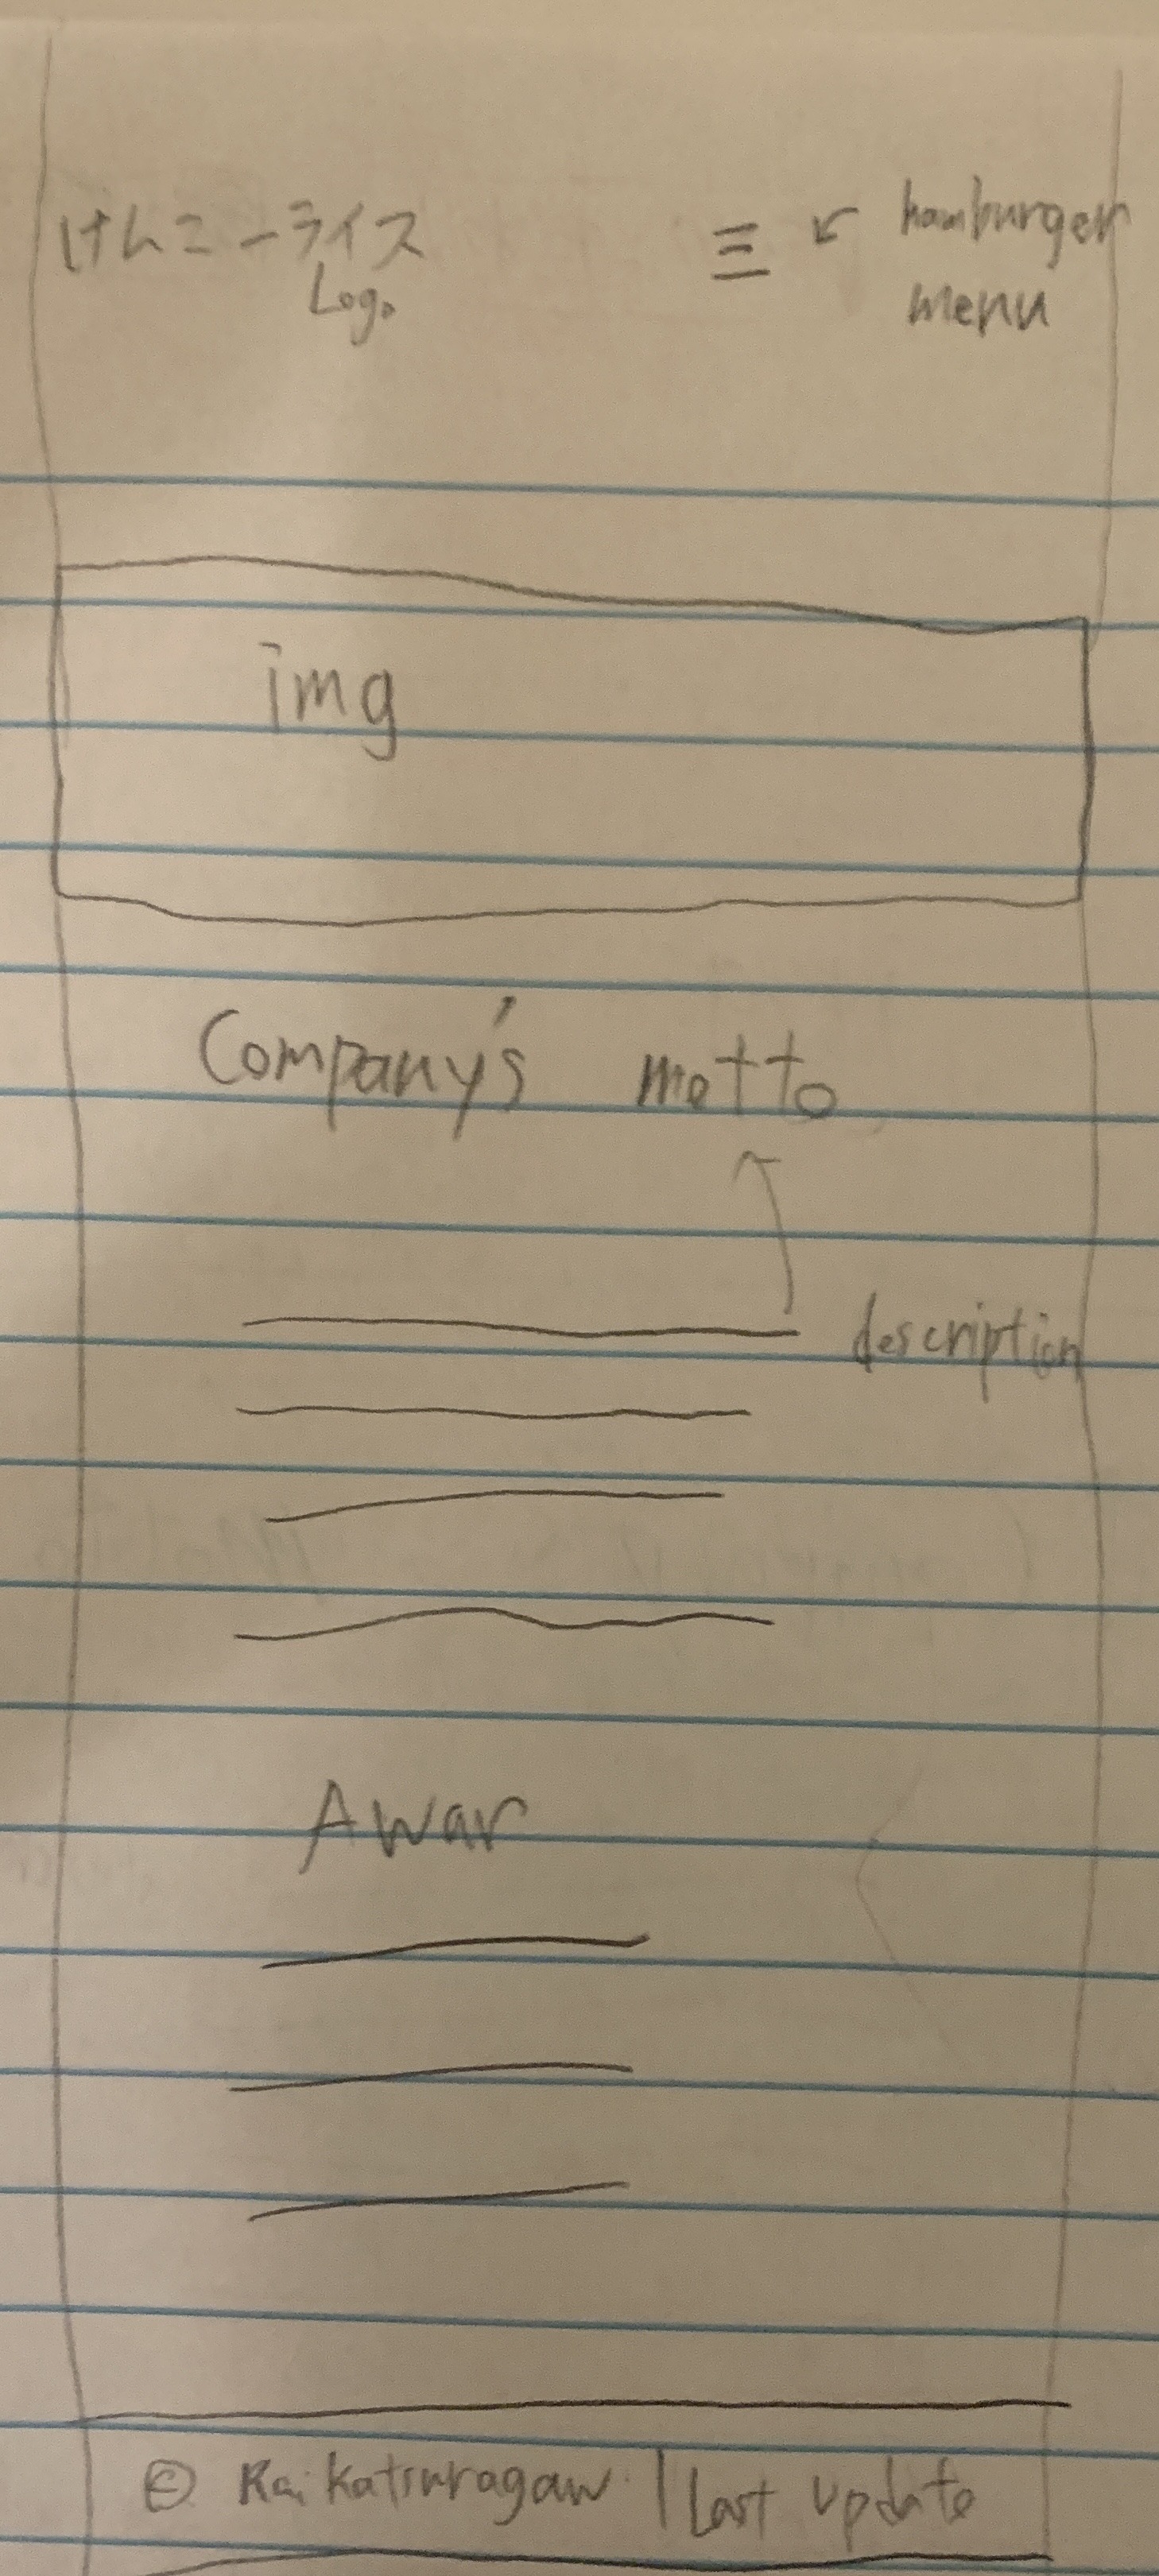 けんこーライス
Logo
☰ ↙ hamburger
menu
img
Company's motto
description
Awar
© Rai Katsuragaw | Last update